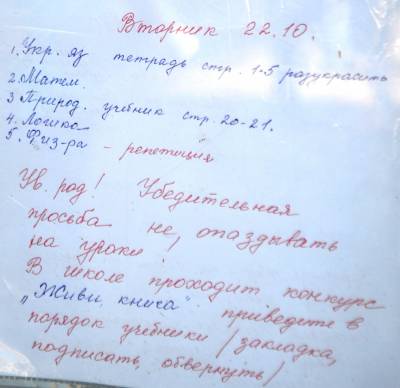 Вторник 22.10.
1. Укр. яз тетрадь стр. 1-5 разукрасить
2. Матем.
3 Природ. учебник стр. 20-21.
4. Логика
5. Физ-ра - репетиция
Ув. род! Убедительная
просьба не опаздывать
на уроки!
В школе проходит конкурс
"Живи, книга" приведите в
порядок учебники /закладка,
подписать, обвернуть/